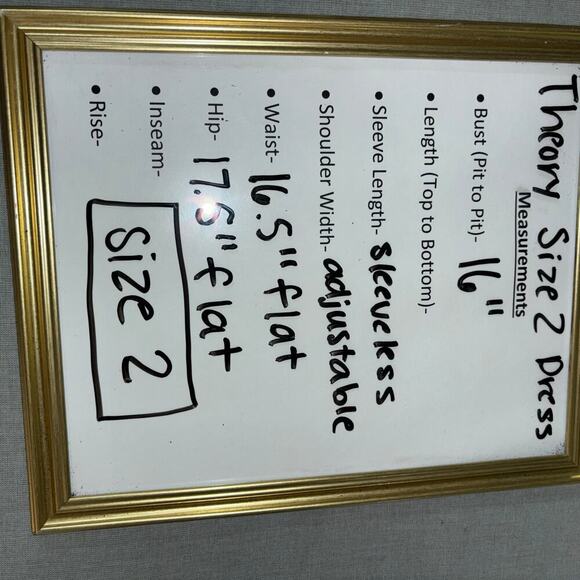 Theory Size 2 Dress
Measurements
• Bust (Pit to Pit)- 16"
• Length (Top to Bottom)-
• Sleeve Length- sleeveless
• Shoulder Width- adjustable
• Waist- 16.5" flat
• Hip- 17.5" flat
• Inseam-
• Rise-
Size 2